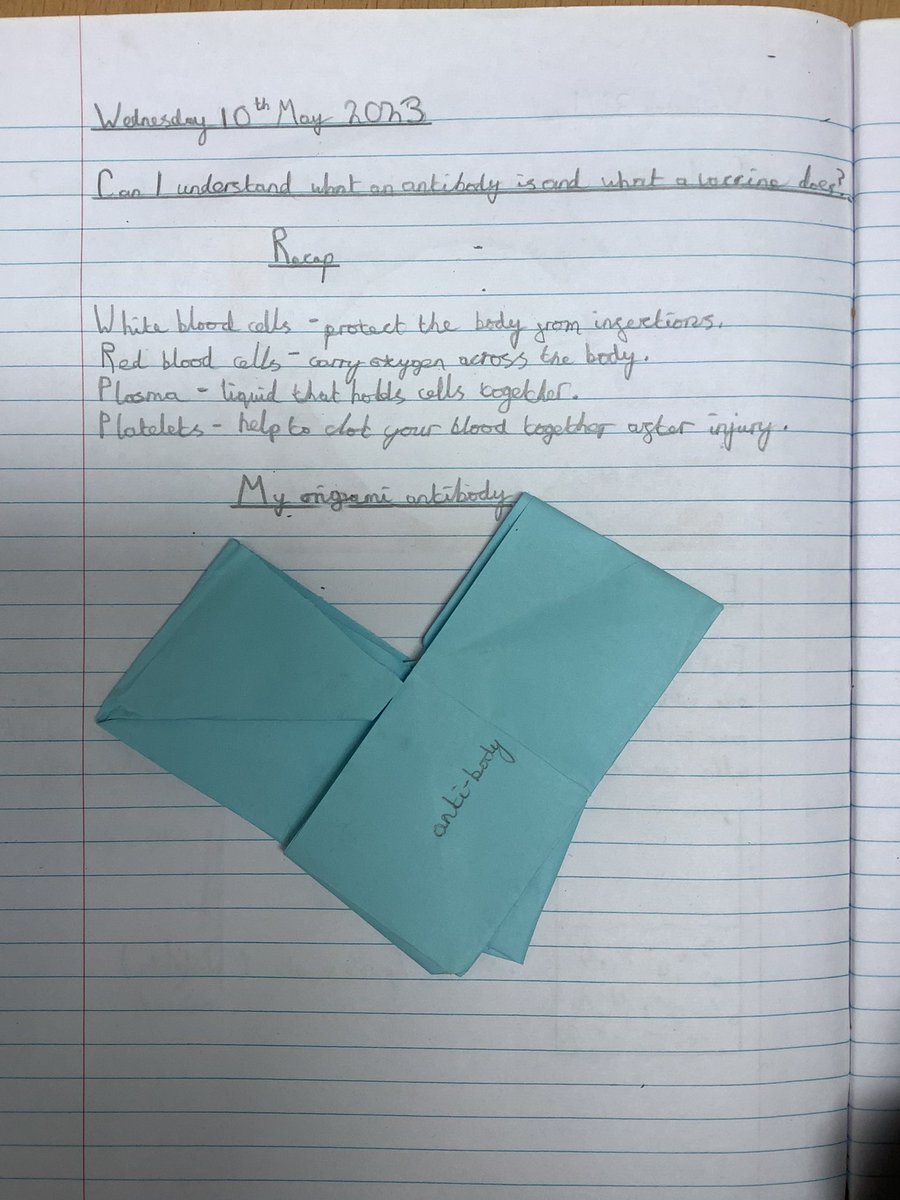 Wednesday 10th May 2023
Can I understand what an antibody is and what a vaccine does?
Recap
White blood cells - protect the body from infections.
Red blood cells - carry oxygen across the body.
Plasma - liquid that holds cells together.
Platelets - help to clot your blood together after injury.
My origami antibody
anti-body